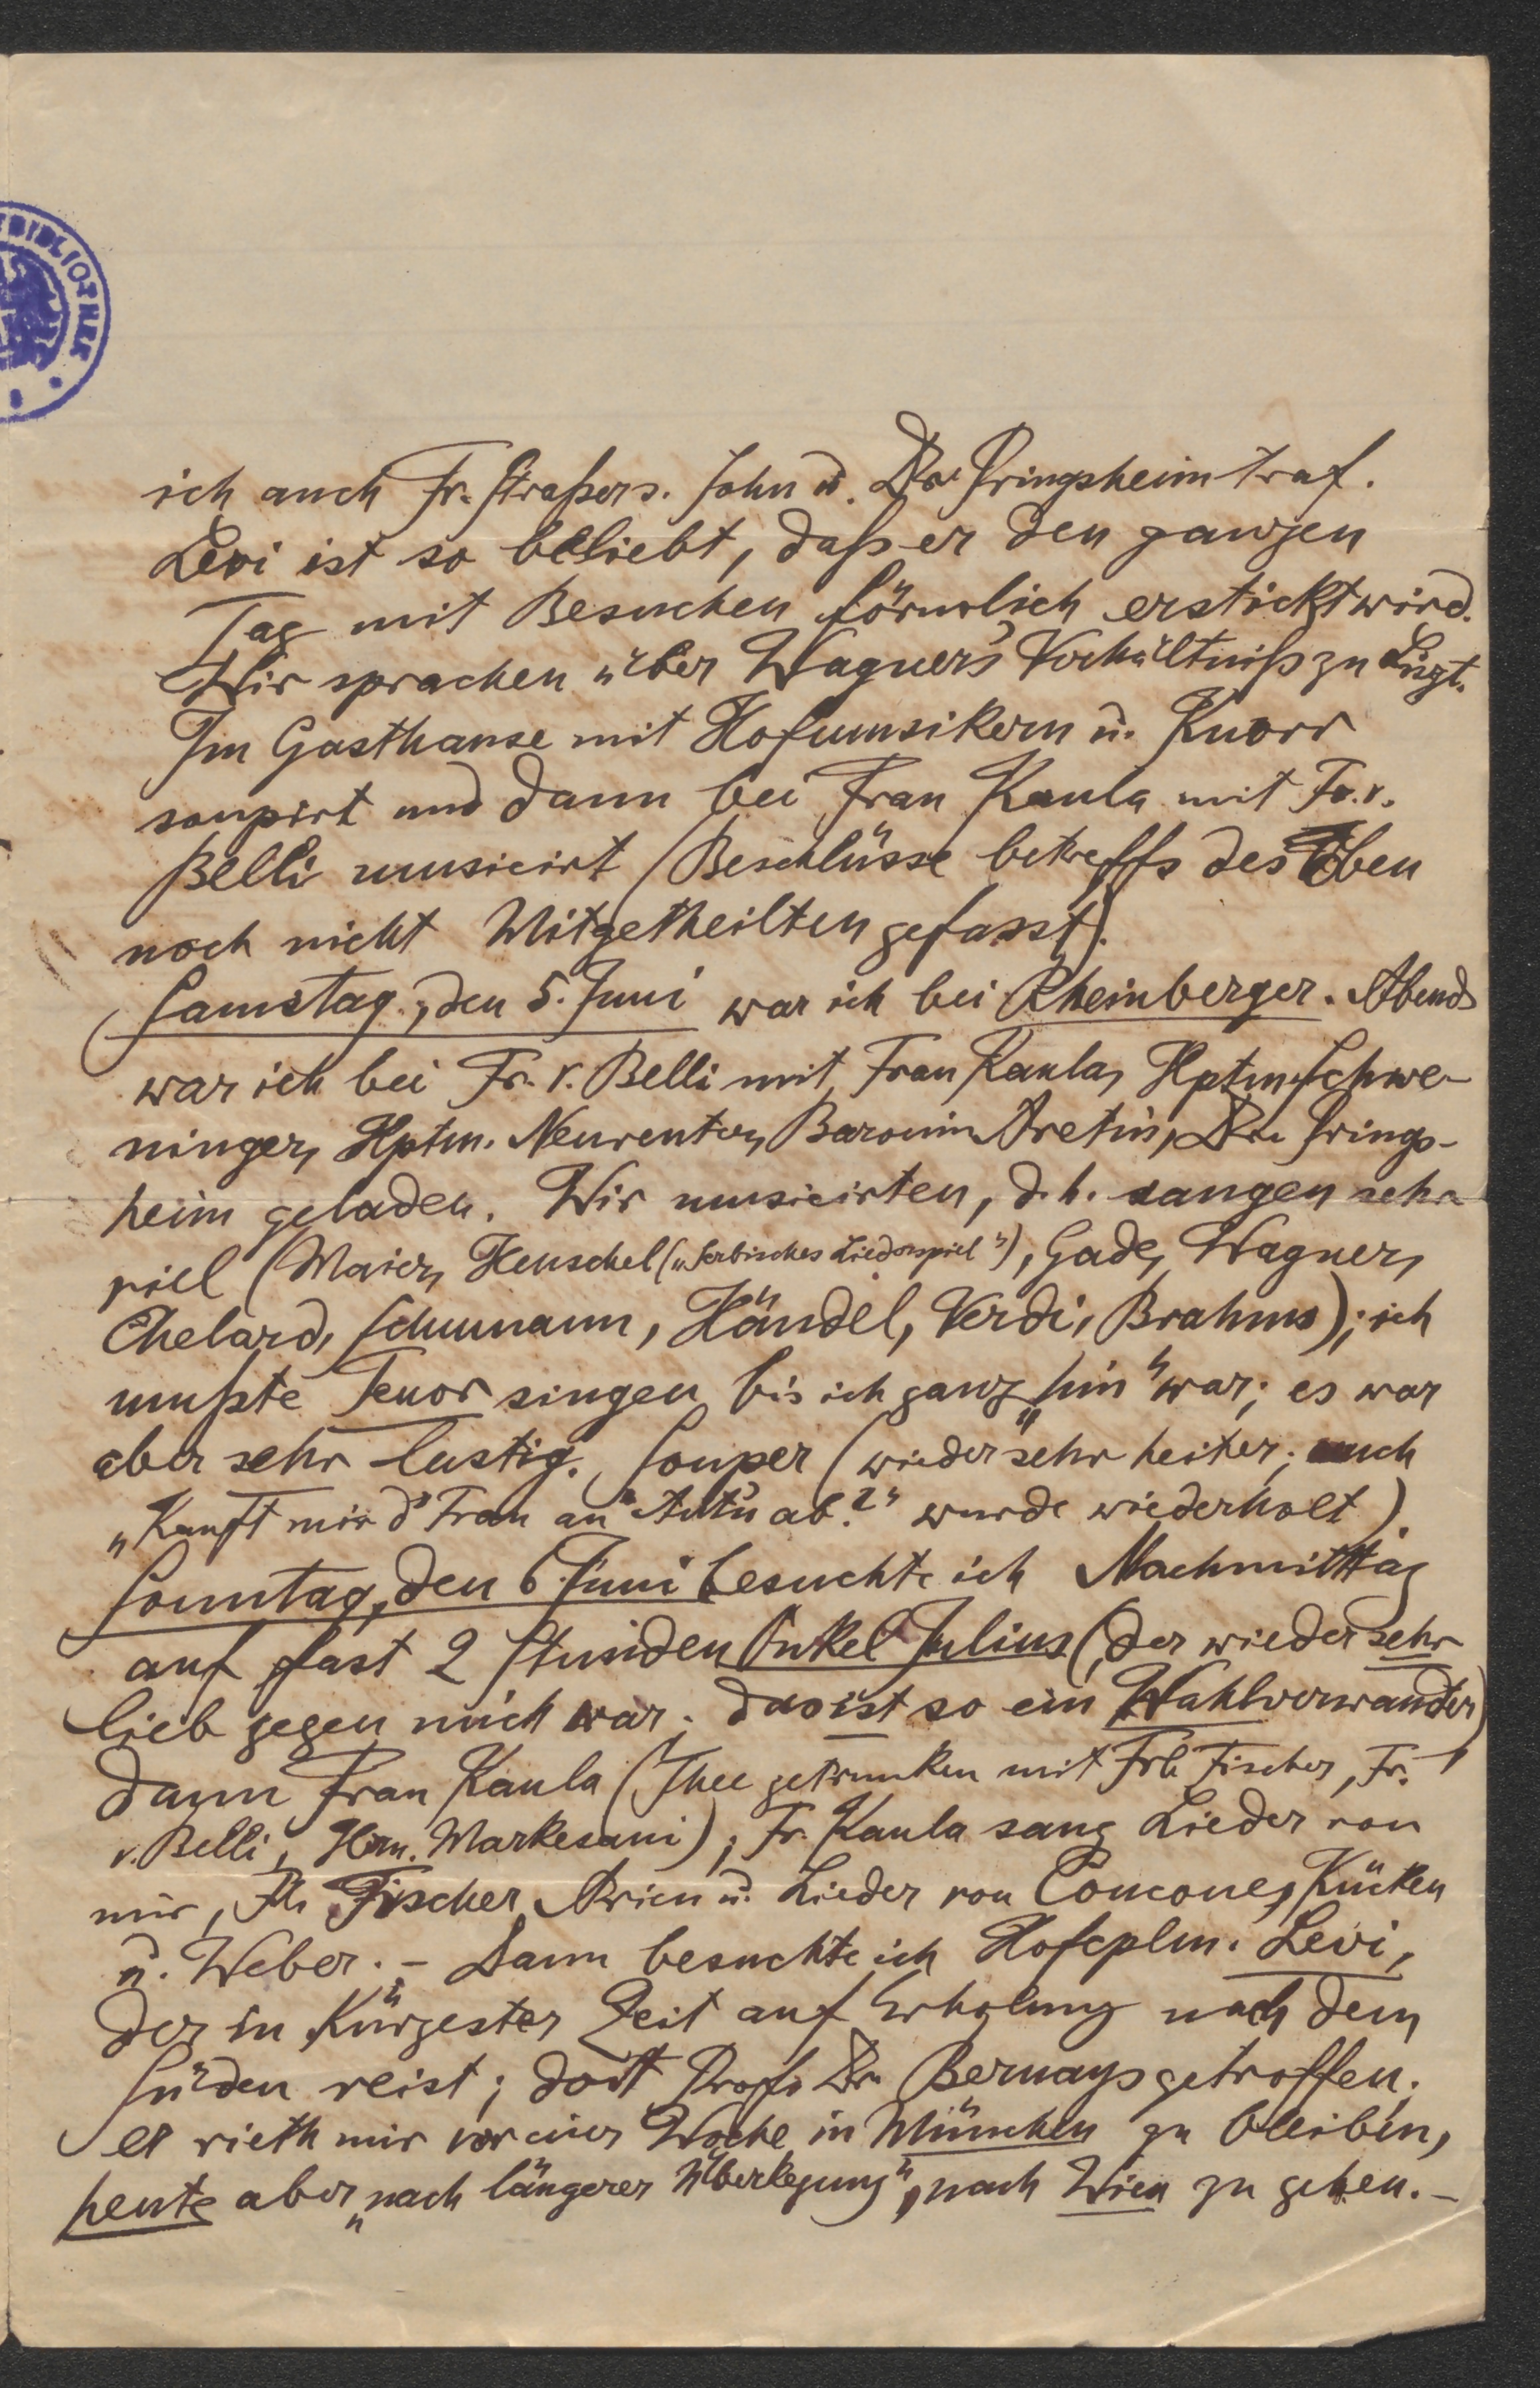 BIBLIOTHEK
ich auch Fr. Straßers. John u. Dr. Pringsheim traf.
Levi ist so beliebt, daß er den ganzen
Tag mit Besuchen förmlich erstickt wird.
Wir sprachen über Wagner's Verhältniß zu Liszt.
Im Gasthause mit Hofmusikern u. Knorr
soupirt und dann bei Frau Kaula mit Fr. v.
Belli musicirt (Beschlüsse betreffs des Oben
noch nicht Mitgetheilten gefasst).
Samstag, den 5. Juni war ich bei Rheinberger. Abends
war ich bei Fr. v. Belli mit Frau Kaula, Hptm. Schwe-
ninger, Hptm. Neureuter, Baronin Aretin, Dr. Prings-
heim geladen. Wir musicirten, d. h. sangen sehr
viel (Maier, Henschel („Serbisches Liederspiel"), Gade, Wagner,
Chelard, Schumann, Händel, Verdi, Brahms); ich
mußte Tenor singen bis ich ganz „hin" war; es war
aber sehr lustig. Souper (wieder sehr heiter; auch
„Kauft mir d' Frau an Antu ab?" wurde wiederholt).
Sonntag, den 6. Juni besuchte ich Nachmittag
auf fast 2 Stunden Onkel Julius (der wieder sehr
lieb gegen mich war. das ist so ein Wahlverwandter)
dann Frau Kaula (Thee getrunken mit Frl. Fischer, Fr.
v. Belli, Hrn. Markesani); Fr. Kaula sang Lieder von
mir, Fr. Fischer Arien u. Lieder von Concone, Kücken
u. Weber. – Dann besuchte ich Hofcplm. Levi,
der in kürzester Zeit auf Erholung nach dem
Süden reist; dort Prof. Dr. Bernays getroffen.
er rieth mir vor einer Woche in München zu bleiben,
heute aber „nach längerer Überlegung", nach Wien zu gehen. –